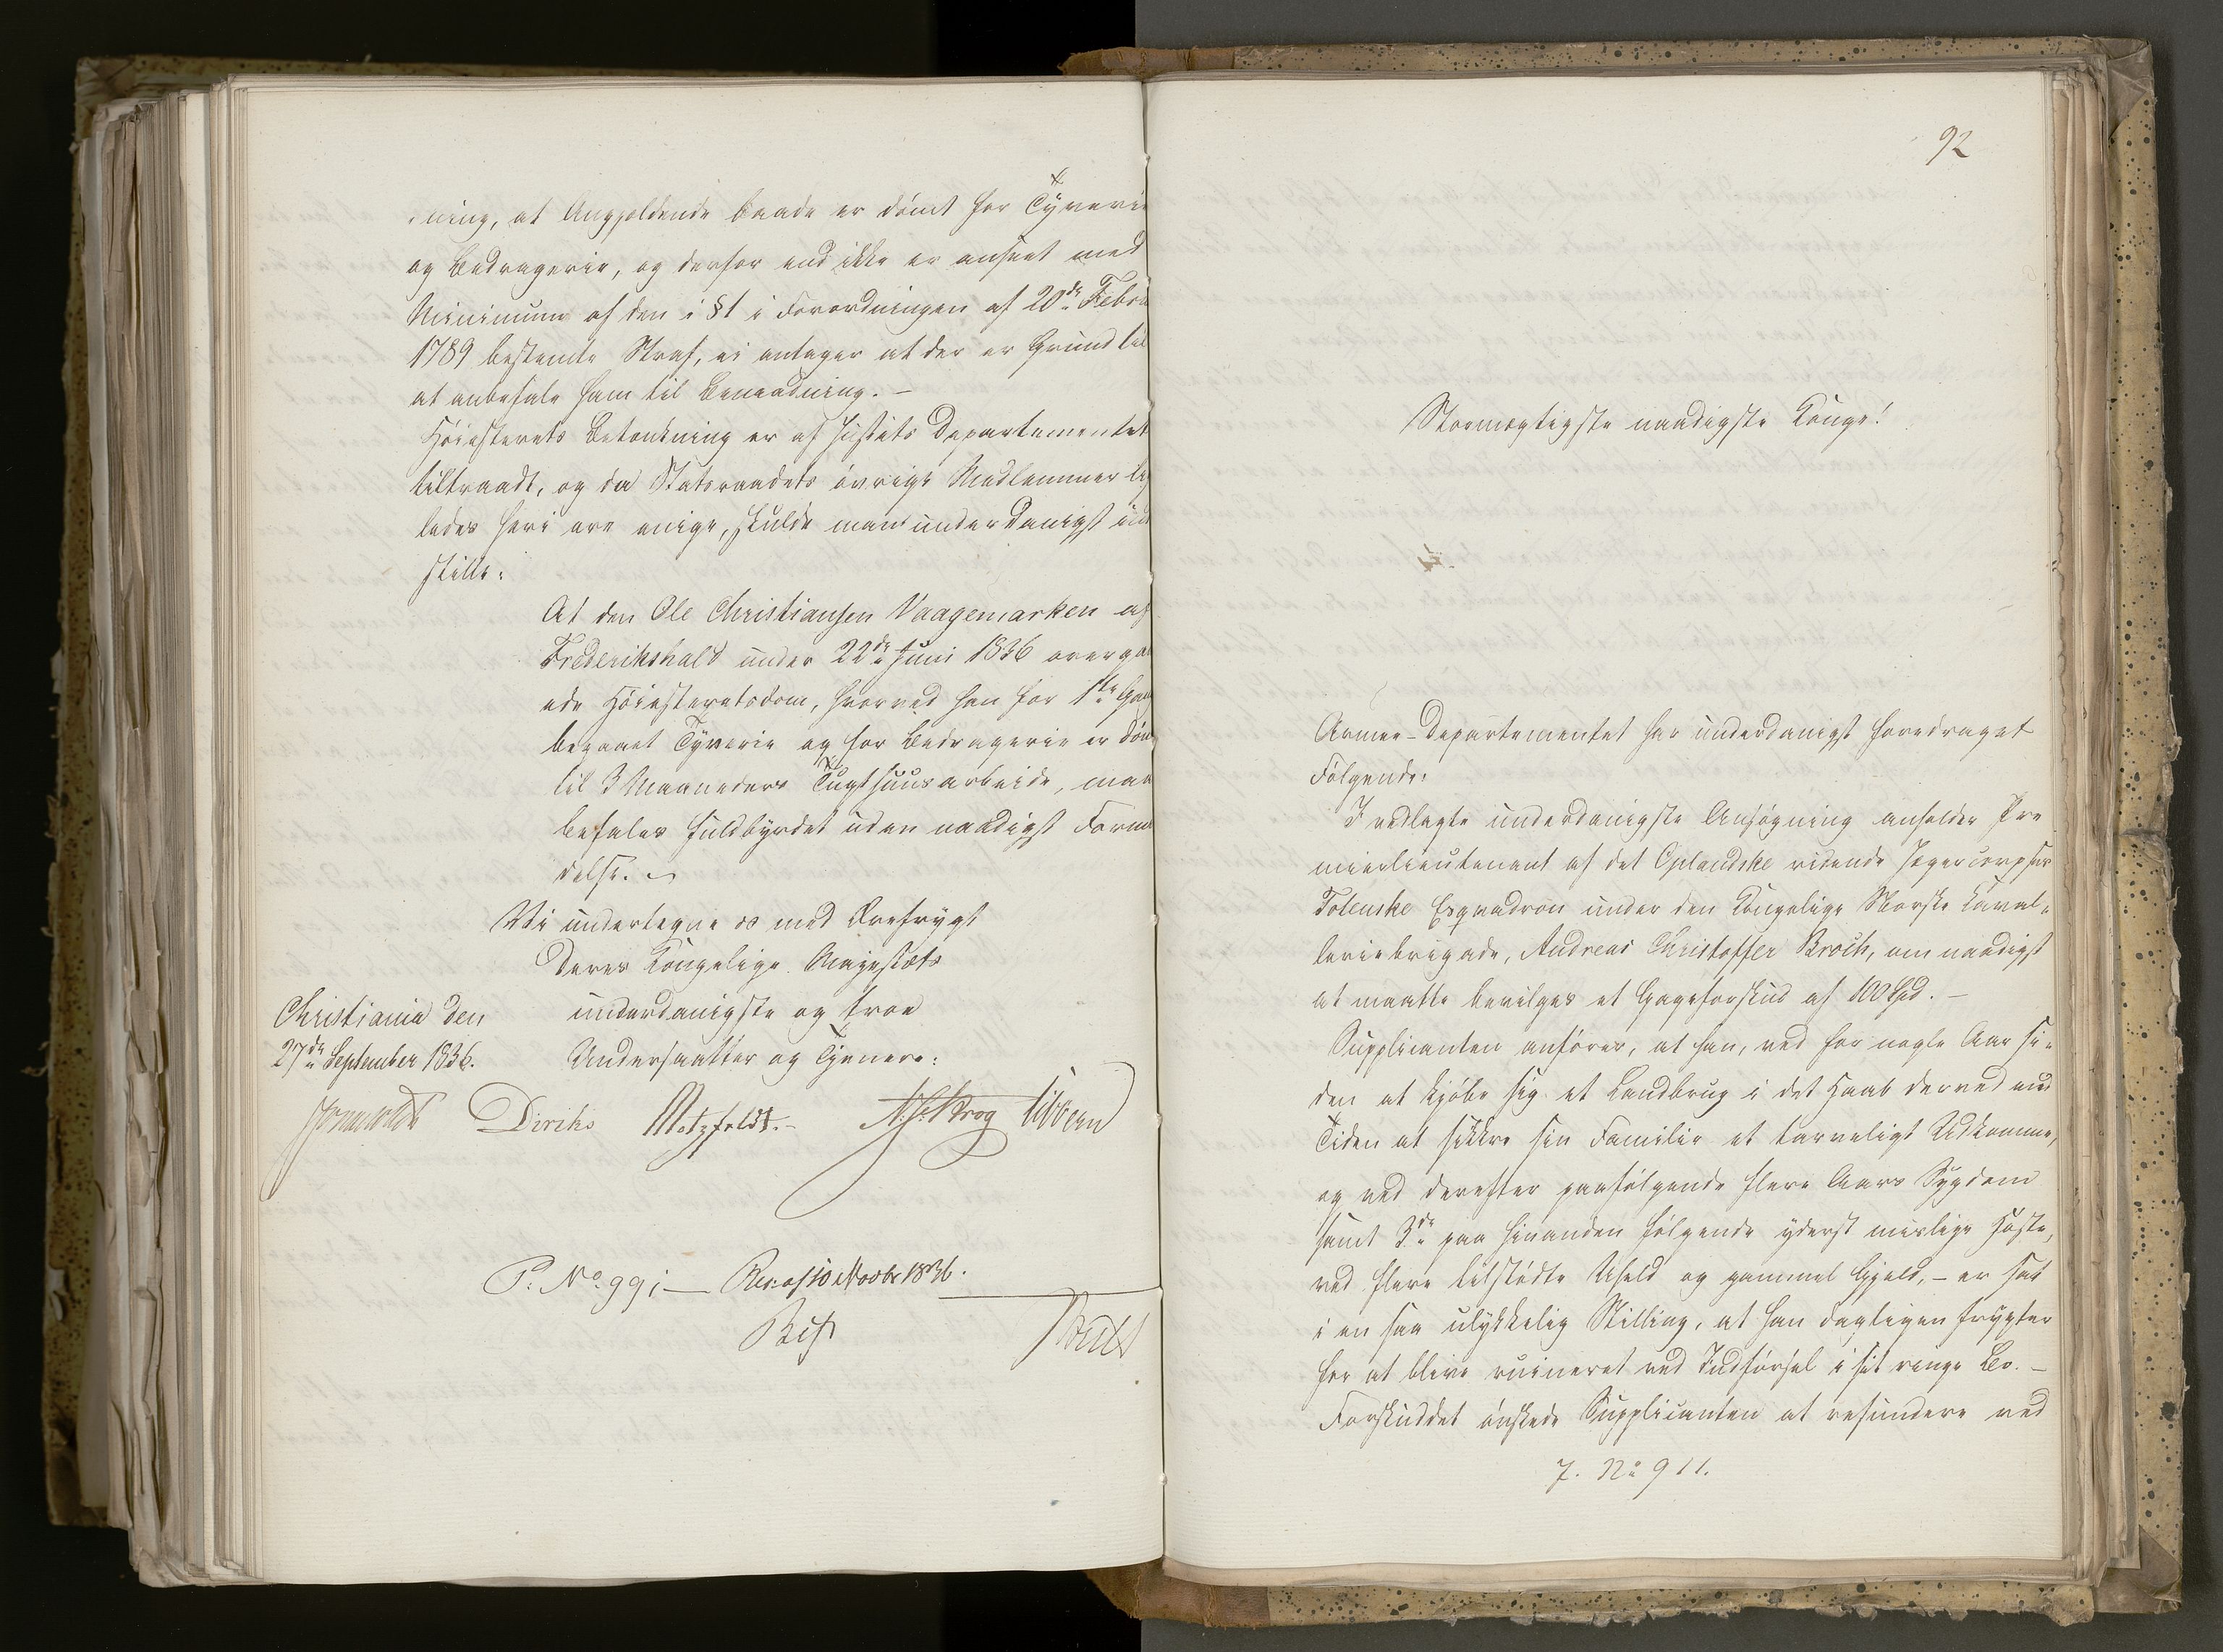 ning, at Angjeldende baade er dömt for Tyverie
og Bedragerie, og derfor end ikke er anseet med
Minimum af den i §1 i Forordningen af 20de Febr
1789 bestemte Straf, ei antager at der er Grund til
at anbefale ham til Benaadning. –
Höiesterets Betænkning er af Justits Departementet
tiltraadt, og da Statsraadets övrige Medlemmer li
ledes heri ere enige, skulde man underdanigst ind
stille:
At den Ole Christiansen Vaagemarken af
Frederikshald under 22de Juni 1836 overgaa
ede Höiesteretsdom, hvorved han for 1ste Gang
begaaet Tyverie og for Bedragerie er döm
til 3 Maaneders Tugthuusarbeide, maa
befales fuldbyrdet uden naadigst Formil
delse.
Vi undertegne os med Ærefrygt
Deres Kongelige Majestæts
underdanigste og troe
Undersaatter og Tjenere:
Christiania den
27de September 1836.
Diriks Motzfeldt. Krog Sibbern
P. No 99; — Res. af 10 Novbr 1836.
92
Stormægtigste naadigste Konge!
Armee-Departementet har underdanigst foredraget
Fölgende:
I vedlagte underdanigste Ansögning anholder Pre
mierlieutenant af det Oplandske ridende Jægercorpses
Totenske Esqvadron under den Kongelige Norske Caval-
leriebrigade, Andreas Christoffer Broch, om naadigst
at maatte bevilges et Gageforskud af 100 Spd. –
Supplicanten anförer, at han, ved for nogle Aar si-
den at kjöbe sig et Landbrug i det Haab derved med
Tiden at sikkre sin Familie et tarveligt Udkomme,
og ved derefter paafölgende flere Aars Sygdom
samt 3de paa hinanden fölgende yderst mislige Höste,
ved flere tilstödte Uheld og gammel Gjeld, – er sat
i en saa ulykkelig Stilling, at han dagligen frygter
for at blive ruineret ved Indförsel i sit ringe Bo. –
Forskuddet önskede Supplicanten at refundere ved
7. No 911.